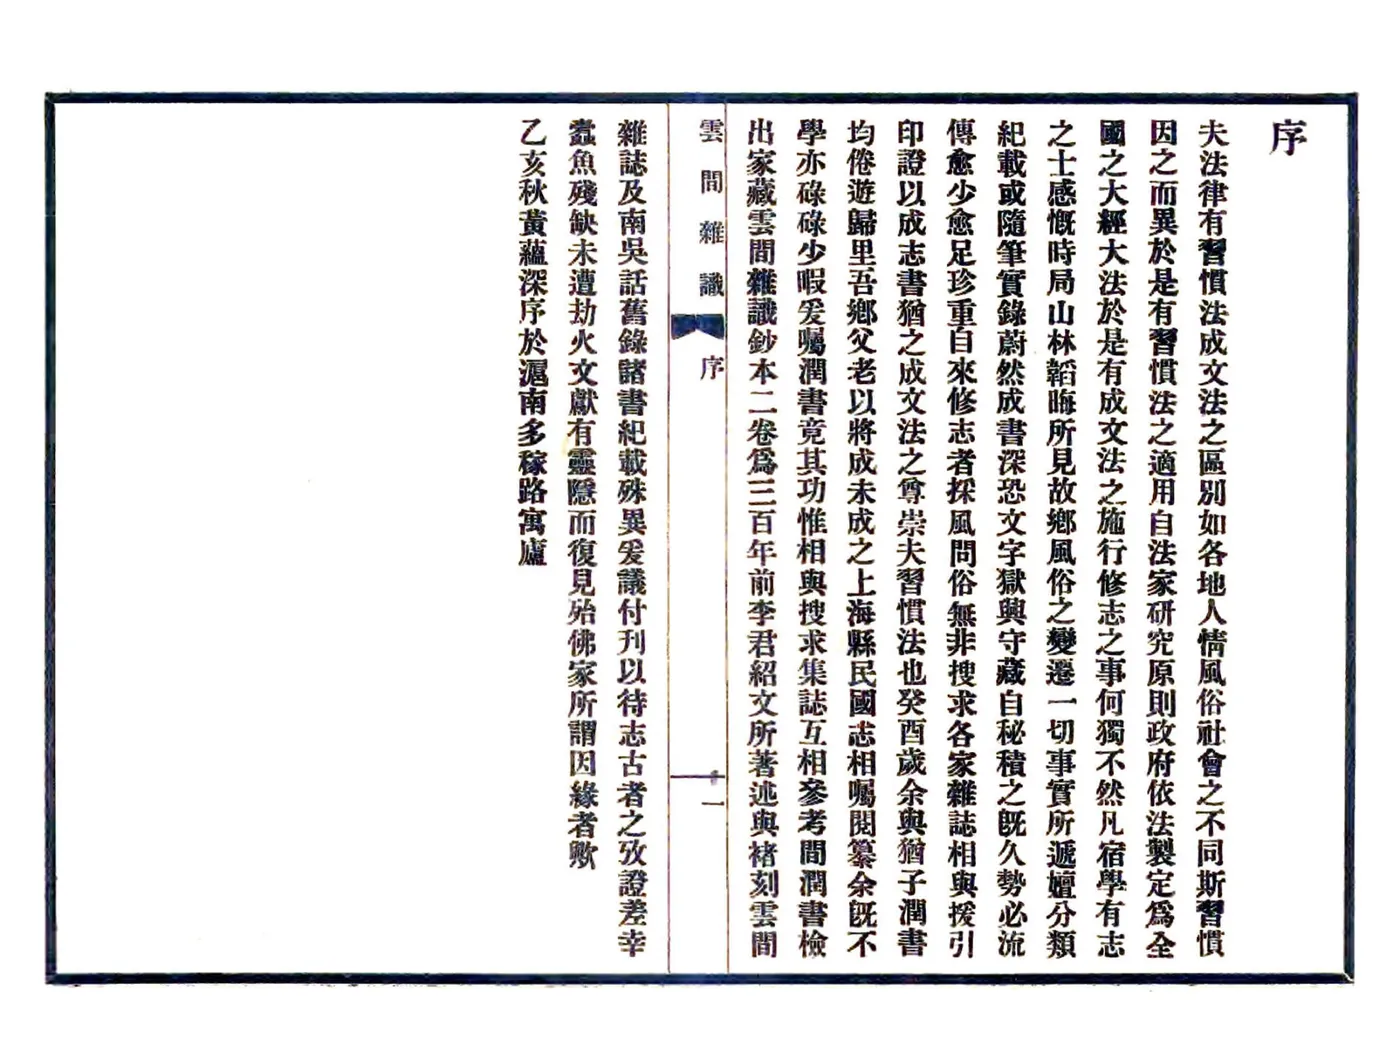 序
夫法律有習慣法成文法之區別如各地人情風俗社會之不同斯習慣
因之而異於是有習慣法之適用自法家研究原則政府依法製定爲全
國之大經大法於是有成文法之施行修志之事何獨不然凡宿學有志
之士感慨時局山林韜晦所見故鄉風俗之變遷一切事實所遞嬗分類
紀載或隨筆實錄蔚然成書深恐文字獄興守藏自秘積之既久勢必流
傳愈少愈足珍重自來修志者採風問俗無非搜求各家雜誌相與援引
印證以成志書猶之成文法之尊崇夫習慣法也癸酉歲余與猶子潤書
均倦遊歸里吾鄉父老以將成未成之上海縣民國志相囑閱纂余既不
學亦碌碌少暇爰囑潤書竟其功惟相與搜求集誌互相參考間潤書檢
出家藏雲間雜識鈔本二卷爲三百年前李君紹文所著述與褚刻雲間
雲間雜識
序
一
雜誌及南吳話舊錄諸書紀載殊異爰議付刊以待志古者之攷證差幸
蠹魚殘缺未遭劫火文獻有靈隱而復見殆佛家所謂因緣者歟
乙亥秋黃蘊深序於滬南多稼路寓廬